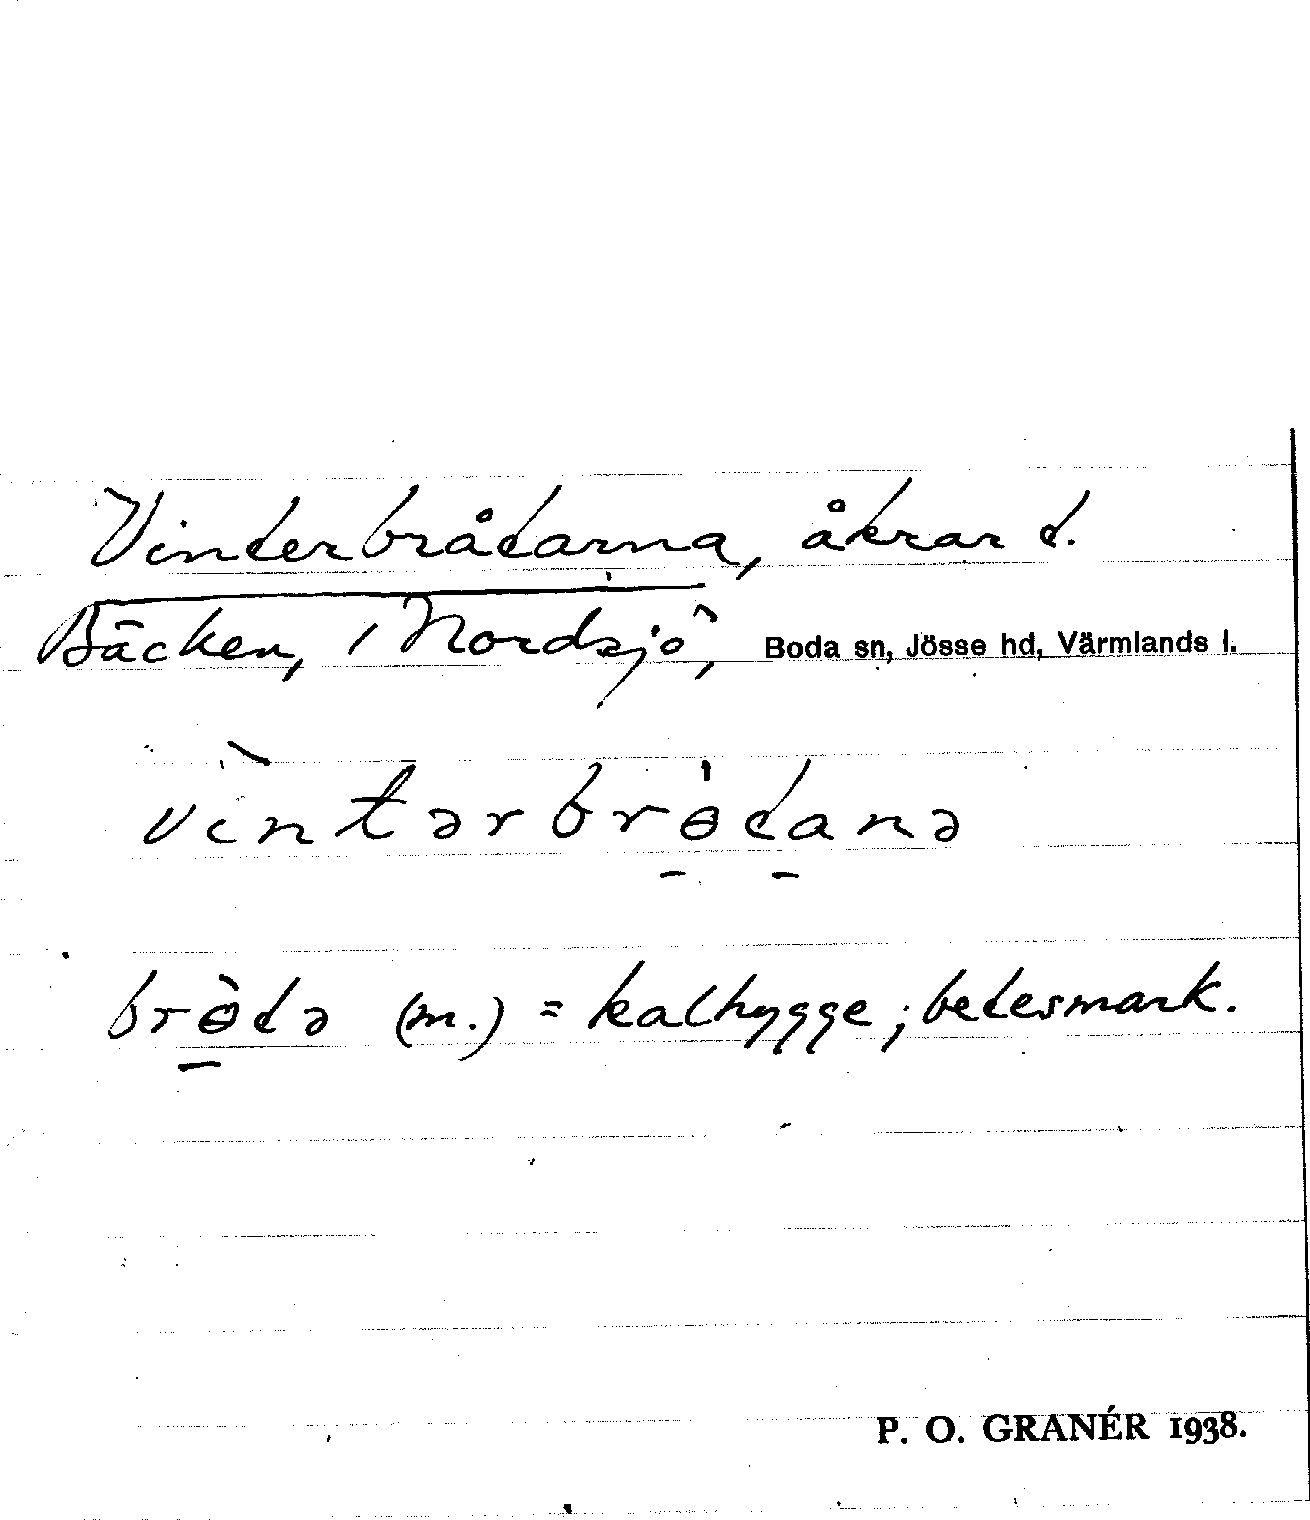 Vinterbråtarna, åkrar t.
Bäcken, i Nordsjö, Boda sn, Jösse hd, Värmlands l.
vìntərbrɵ̀tanə
brɵ̀tə (m.) = kalhygge; betesmark.
P. O. GRANÉR 1938.